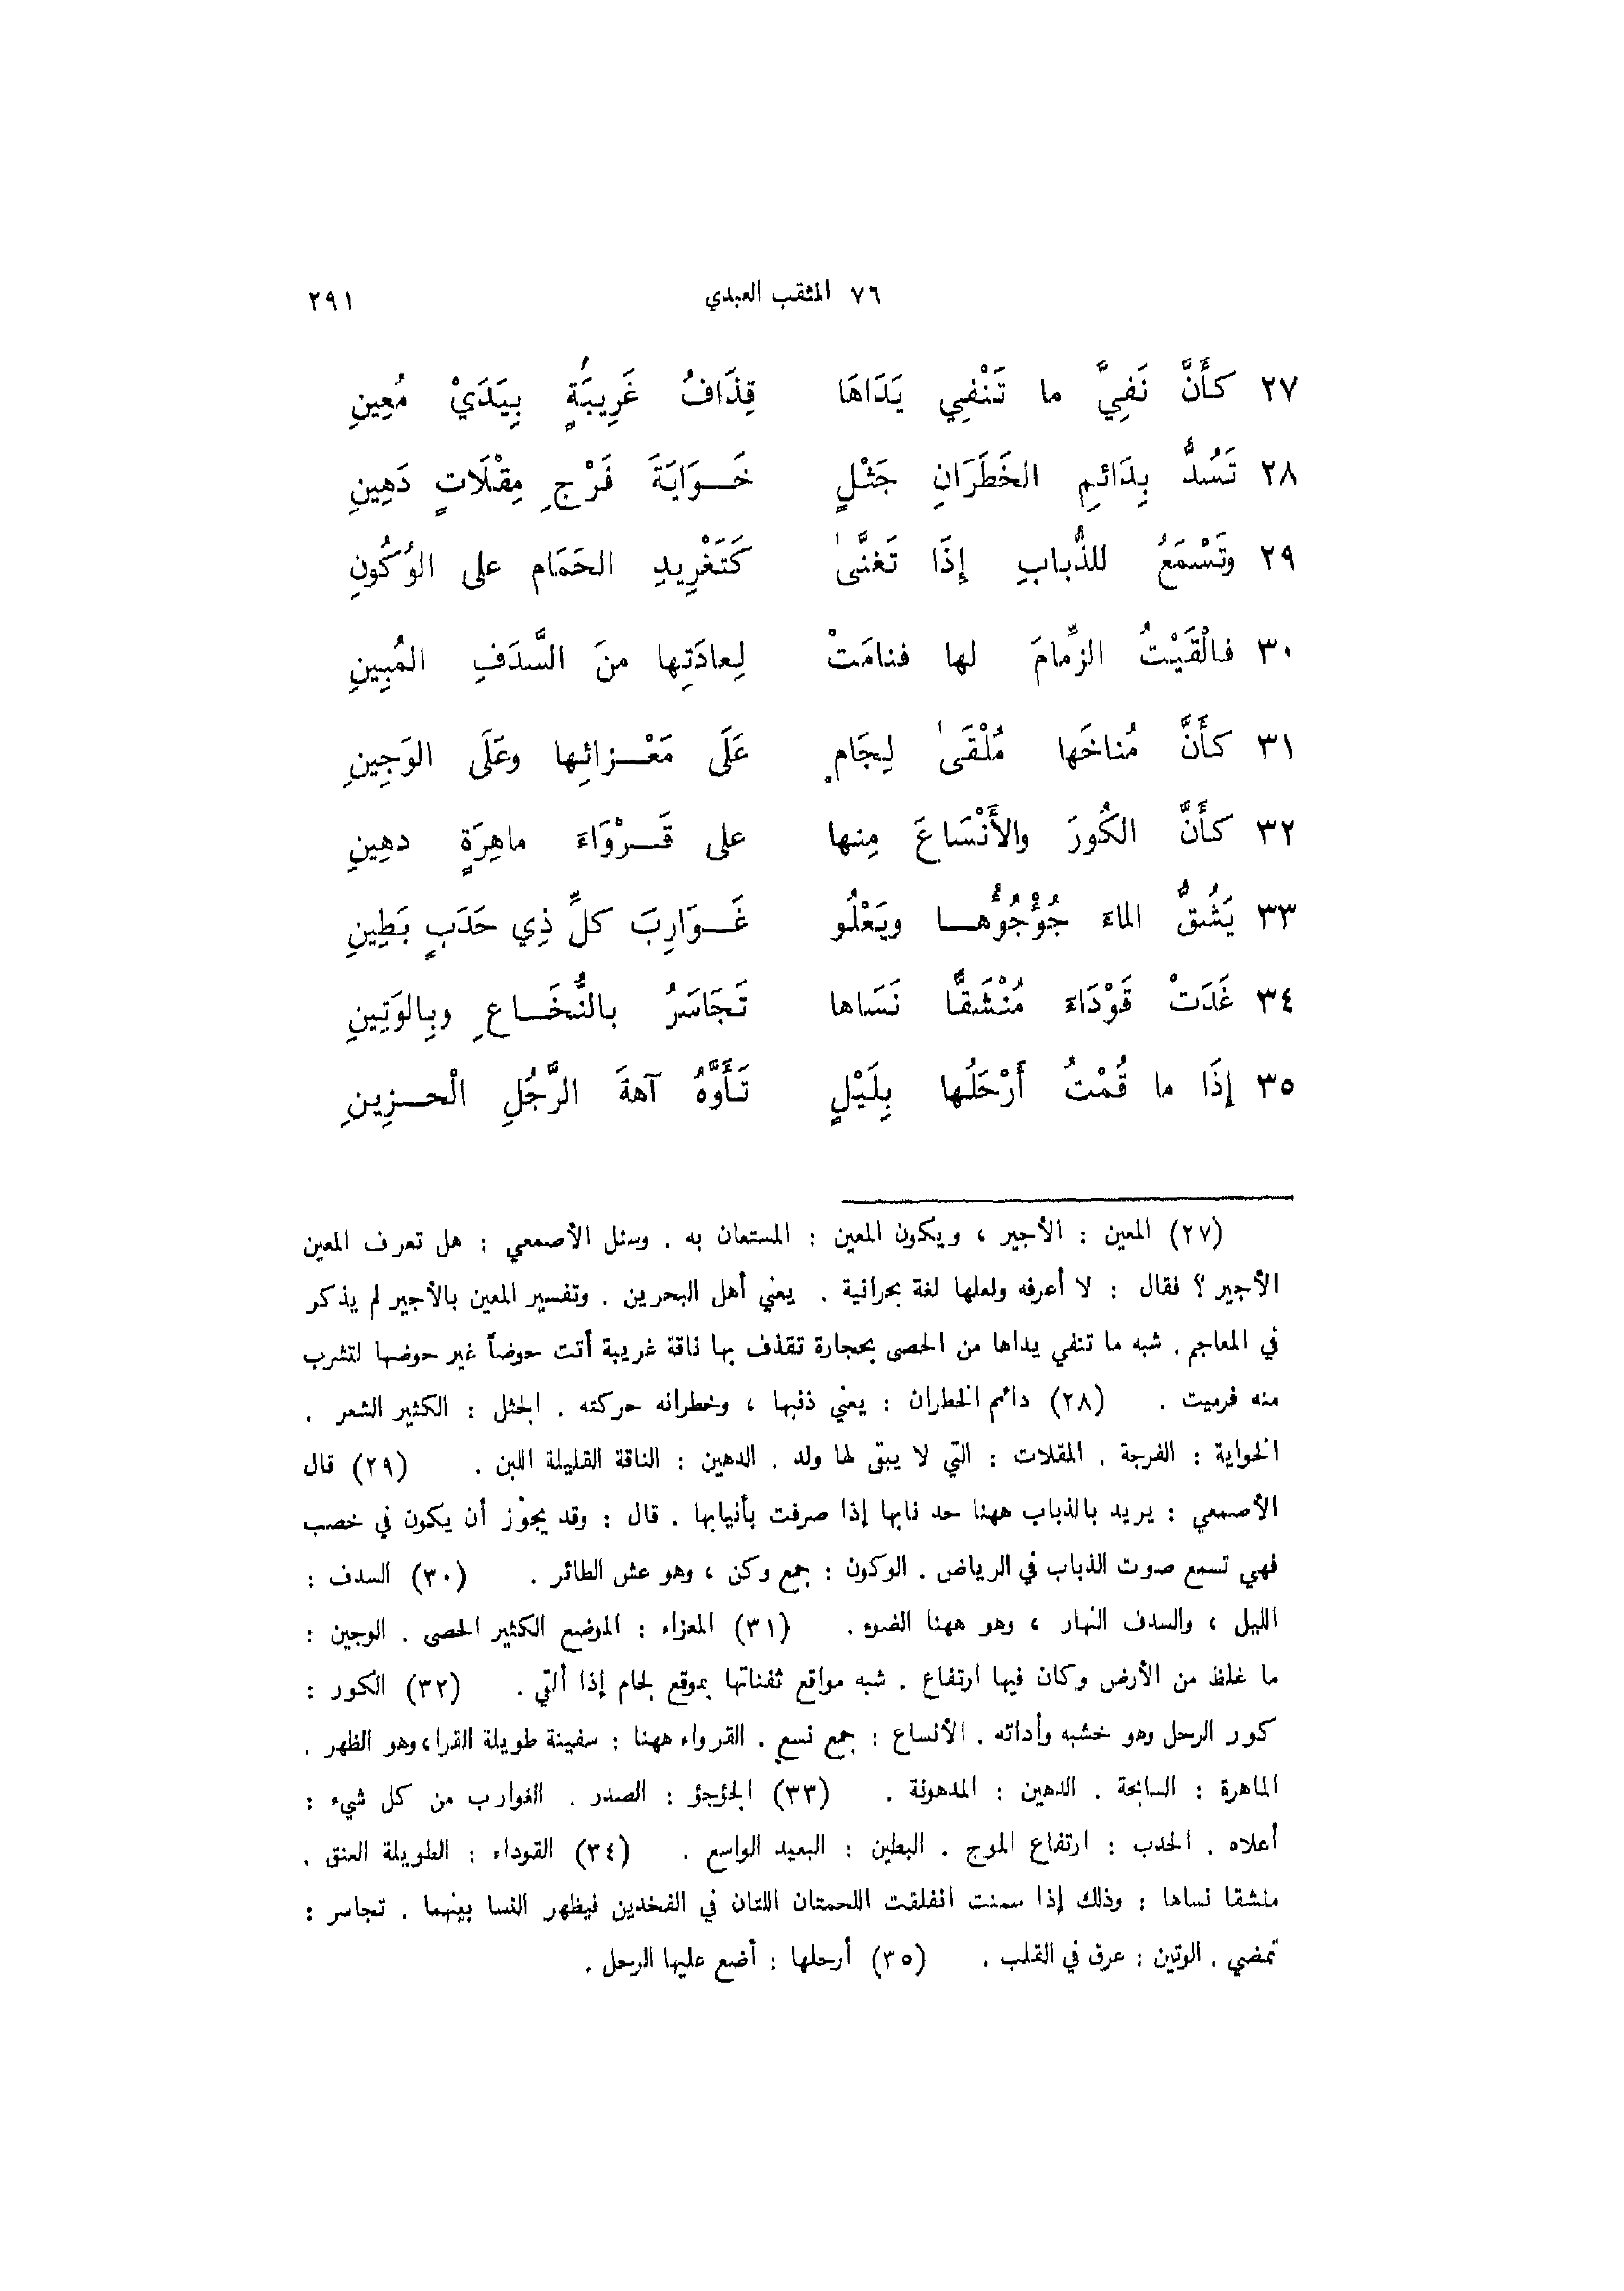 ٧٦ المثقب العبدي ٢٩١
٢٧ كَأَنَّ نَفِيَّ ما تَنْفِي يَدَاهَا قِذَافُ غَرِيبَةٍ بِيَدَيْ مُعِينِ
٢٨ تَسُدُّ بِدَائمِ الخَطَرَانِ جَثْلٍ خَوَايَةَ فَرْجِ مِقْلَاتٍ دَهِينِ
٢٩ وتَسْمَعُ للذُّبابِ إِذَا تَغَنَّىٰ كَتَغْرِيدِ الحَمَامِ على الوُكُونِ
٣٠ فالْقَيْتُ الزِّمامَ لها فنامَتْ لِعادَتِها منَ السَّدَفِ المُبِينِ
٣١ كأَنَّ مُناخَها مُلْقَىٰ لِجَامٍ عَلَى مَعْزائِها وعَلَى الوَجِينِ
٣٢ كأَنَّ الكُورَ والأَنْسَاعَ مِنها على قَرْوَاءَ ماهِرَةٍ دهِينِ
٣٣ يَشُقُّ الماءَ جُؤْجُؤُها ويَعْلُو غَوَارِبَ كلِّ ذِي حَدَبٍ بَطِينِ
٣٤ غَدَتْ قَوْدَاءَ مُنْشَقًّا نَسَاها تَجَاسَرُ بالنُّخَاعِ وبِالوَتِينِ
٣٥ إِذَا ما قُمْتُ أَرْحَلُها بِلَيْلٍ تَأَوَّهُ آهةَ الرَّجُلِ الْحزِينِ
(٢٧) المعين : الأجير ، ويكون المعين : المستعان به . وسئل الأصمعي : هل تعرف المعين
الأجير ؟ فقال : لا أعرفه ولعلها لغة بحرانية . يعني أهل البحرين . وتفسير المعين بالأجير لم يذكر
في المعاجم . شبه ما تنفي يداها من الحصى بحجارة تقذف بها ناقة غريبة أتت حوضاً غير حوضها لتشرب
منه فرميت . (٢٨) دائم الخطران : يعني ذنبها ، وخطرانه حركته . الجثل : الكثير الشعر .
الخواية : الفرجة . المقلات : التي لا يبقى لها ولد . الدهين : الناقة القليلة اللبن . (٢٩) قال
الأصمعي : يريد بالذباب ههنا حد نابها إذا صرفت بأنيابها . قال : وقد يجوز أن يكون في خصب
فهي تسمع صوت الذباب في الرياض . الوكون : جمع وكن ، وهو عش الطائر . (٣٠) السدف :
الليل ، والسدف النهار ، وهو ههنا الضوء . (٣١) المعزاء : الموضع الكثير الحصى . الوجين :
ما غلظ من الأرض وكان فيها ارتفاع . شبه مواقع ثفناتها بموقع لجام إذا ألقي . (٣٢) الكور :
كور الرحل وهو خشبه وأداته . الأنساع : جمع نسع . القرواء ههنا : سفينة طويلة القرا ، وهو الظهر .
الماهرة : السابحة . الدهين : المدهونة . (٣٣) الجؤجؤ : الصدر . الغوارب من كل شيء :
أعلاه . الحدب : ارتفاع الموج . البطين : البعيد الواسع . (٣٤) القوداء : الطويلة العنق .
منشقا نساها : وذلك إذا سمنت انفلقت اللحمتان اللتان في الفخدين فيظهر النسا بينهما . تجاسر :
تمضي . الوتين : عرق في القلب . (٣٥) أرحلها : أضع عليها الرحل .